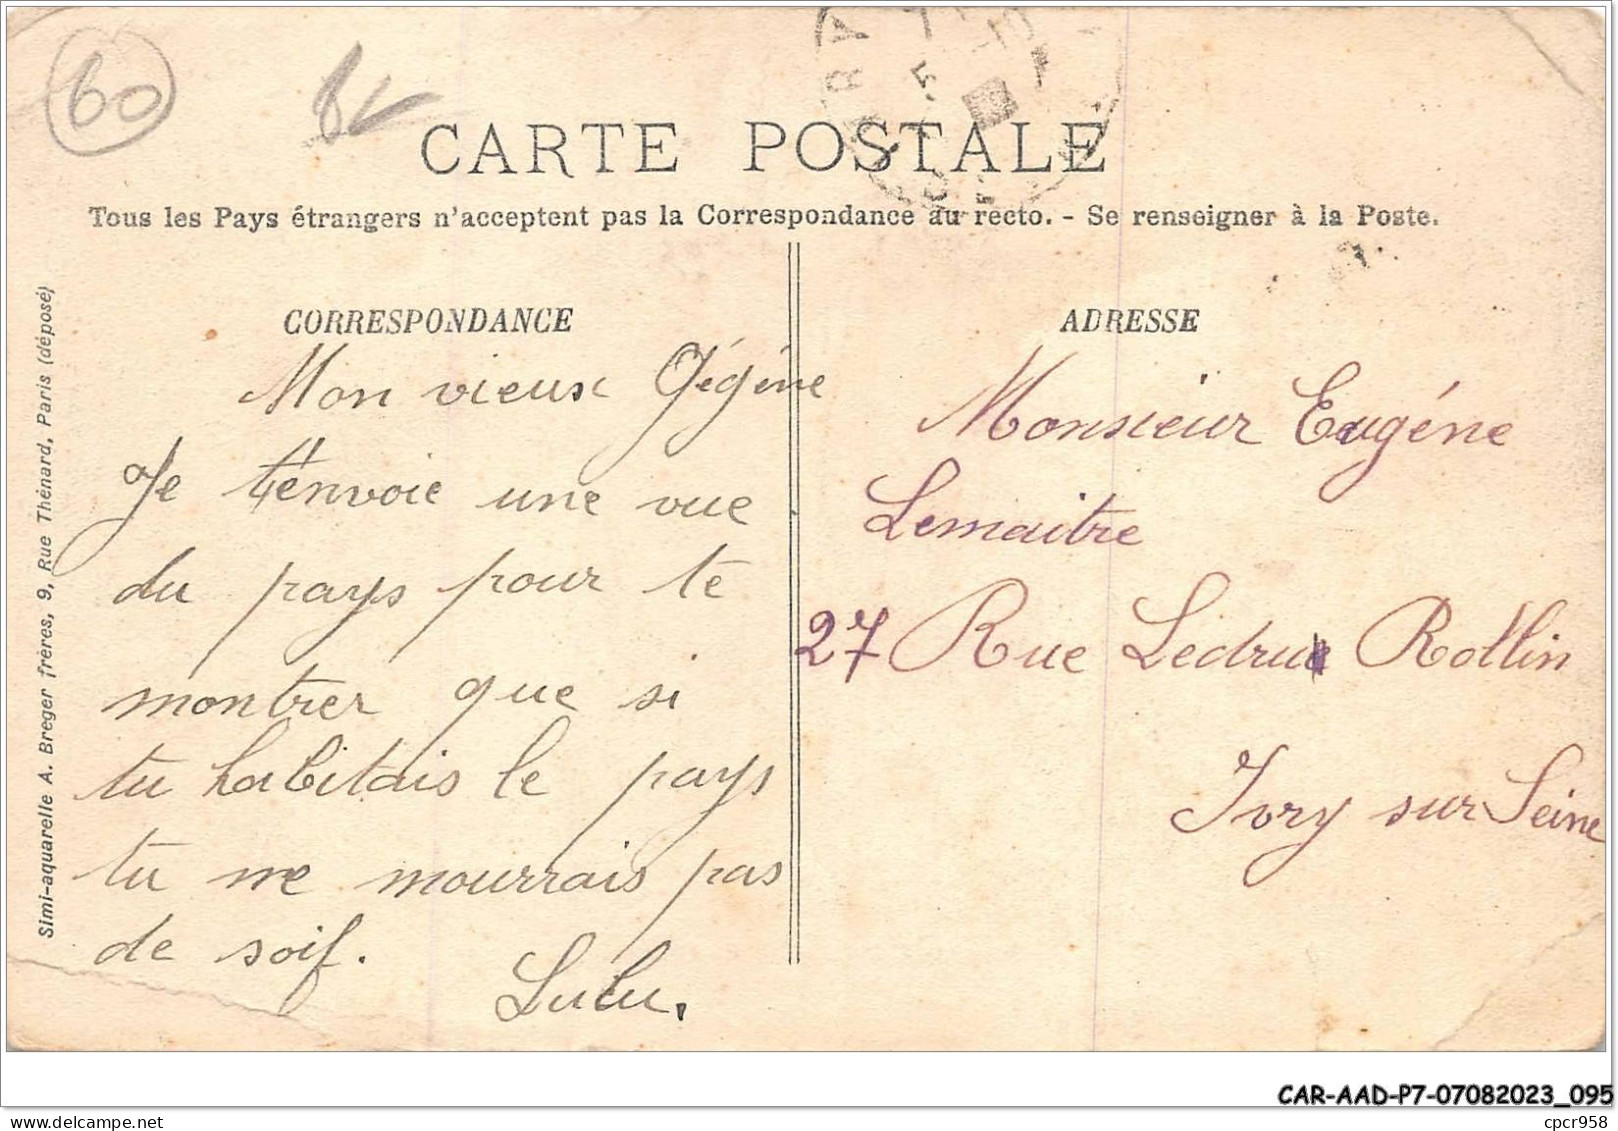 60
CARTE POSTALE
Tous les Pays étrangers n'acceptent pas la Correspondance au recto. - Se renseigner à la Poste.
CORRESPONDANCE
Mon vieux Gégéne
Je t'envoie une vue
du pays pour te
montrer que si
tu habitais le pays
tu ne mourrais pas
de soif.
Lulu.
ADRESSE
Monsieur Eugéne
Lemaitre
27 Rue Ledru Rollin
Ivry sur Seine
Simi-aquarelle A. Breger frères, 9, Rue Thénard, Paris (déposé)
CAR-AAD-P7-07082023_095
cpcr958